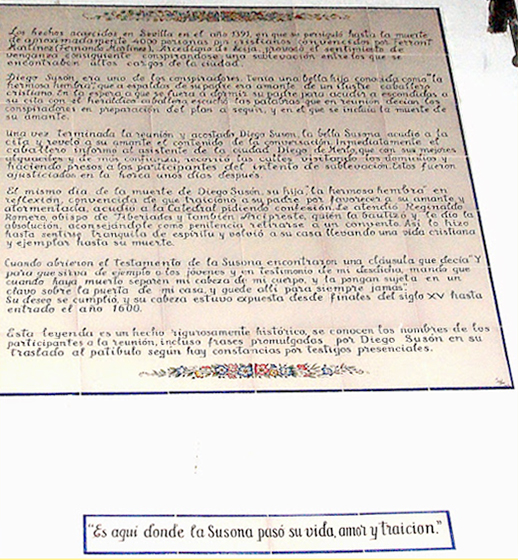 Los hechos acaecidos en Sevilla en el año 1391, en que se persiguió hasta la muerte
de aproximadamente 400 personas por cristianos convencidos por Ferrant
Martinez (Fernando Martinez), Arcediano de Ecija, provocó el sentimiento de
venganza consiguiente conspirandose una sublevación entre los que se
encontraban los cargos de la ciudad.
Diego Susón, era uno de los conspiradores. Tenía una bella hija conocida como "la
hermosa hembra" que a espaldas de su padre era amante de un ilustre caballero
cristiano. En la espera a que se fuera a dormir su padre para acudir a escondidas a
su cita con el heráldico caballero escuchó las palabras que en reunión decían los
conspiradores en preparación del plan a seguir, y en el que se incluía la muerte de
su amante.
Una vez terminada la reunión y acostado Diego Suson, la bella Susona acudió a la
cita y reveló a su amante el contenido de la conversación. Inmediatamente el
caballero informó al asistente de la ciudad Diego de Merlo, que con sus mejores
alguaciles y de más confianza, recorrió las calles visitando los domicilios y
haciendo presos a los participantes del intento de sublevación. Estos fueron
ajusticiados en la horca unos días después.
El mismo día de la muerte de Diego Susón, su hija "la hermosa hembra" en
reflexión, convencida de que traicionó a su padre por favorecer a su amante y
atormentada, acudió a la Catedral pidiendo confesión. Le atendió Reginaldo
Romero, obispo de Tiberiades y también Arcipreste, quién la bautizó y le dio la
absolución, aconsejándole como penitencia retirarse a un convento. Así lo hizo
hasta sentirse tranquila de espíritu y volvió a su casa llevando una vida cristiana
y ejemplar hasta su muerte.
Cuando abrieron el testamento de la Susona encontraron una cláusula que decía "Y
para que sirva de ejemplo a los jóvenes y en testimonio de mi desdicha, mando que
cuando haya muerto separen mi cabeza de mi cuerpo, y la pongan sujeta en un
clavo sobre la puerta de mi casa, y quede allí para siempre jamás."
Su deseo se cumplió, y su cabeza estuvo expuesta desde finales del siglo XV hasta
entrado el año 1600.
Esta leyenda es un hecho rigurosamente histórico, se conocen los nombres de los
participantes a la reunión, incluso frases promulgadas por Diego Susón en su
traslado al patíbulo según hay constancias por testigos presenciales.
"Es aquí donde la Susona pasó su vida, amor y traicion."